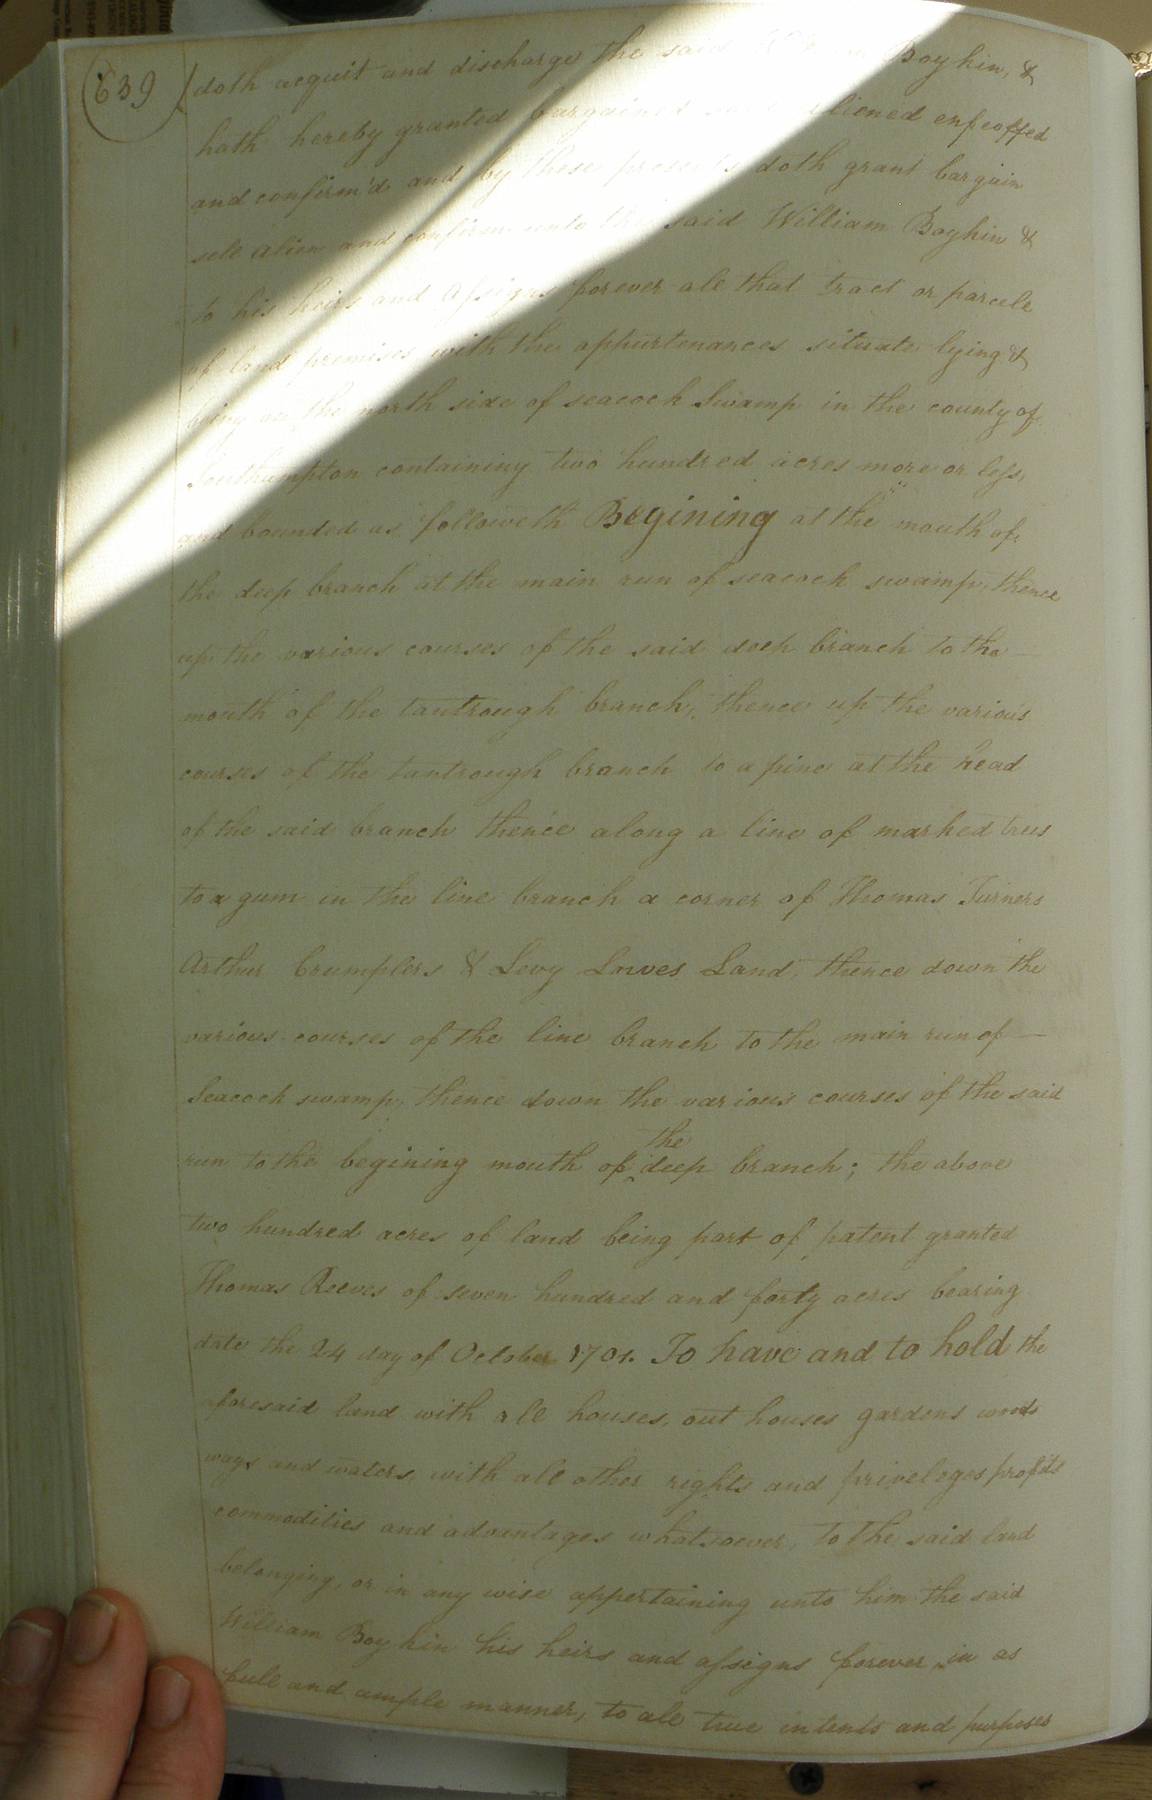 639
doth acquit and discharge the said William Boykin, &
hath hereby granted bargained sold aliened enfeoffed
and confirm'd and by these presents doth grant bargain
sell alien and confirm unto the said William Boykin &
to his heirs and assigns forever all that tract or parcele
of land premises with the appurtenances situate lying &
being on the north side of seacock Swamp in the county of
Southampton containing two hundred acres more or less,
and bounded as followeth Begining at the mouth of
the deep branch at the main run of seacock swamp, thence
up the various courses of the said deep branch to the
mouth of the tantrough branch, thence up the various
courses of the tantrough branch to a pine at the head
of the said branch thence along a line of marked trees
to a gum in the line branch a corner of Thomas Turners
Arthur Crumplers & Levy Lawes Land, thence down the
various courses of the line branch to the main run of
Seacock swamp, thence down the various courses of the said
run to the begining mouth of the deep branch; the above
two hundred acres of land being part of patent granted
Thomas Reeves of seven hundred and forty acres bearing
date the 24 day of October 1701. To have and to hold the
aforesaid land with all houses, out houses gardens woods
ways and waters, with all other rights and priveleges profits
commodities and advantages whatsoever, to the said land
belonging, or in any wise appertaining unto him the said
William Boykin his heirs and assigns forever, in as
full and ample manner, to all true intents and purposes